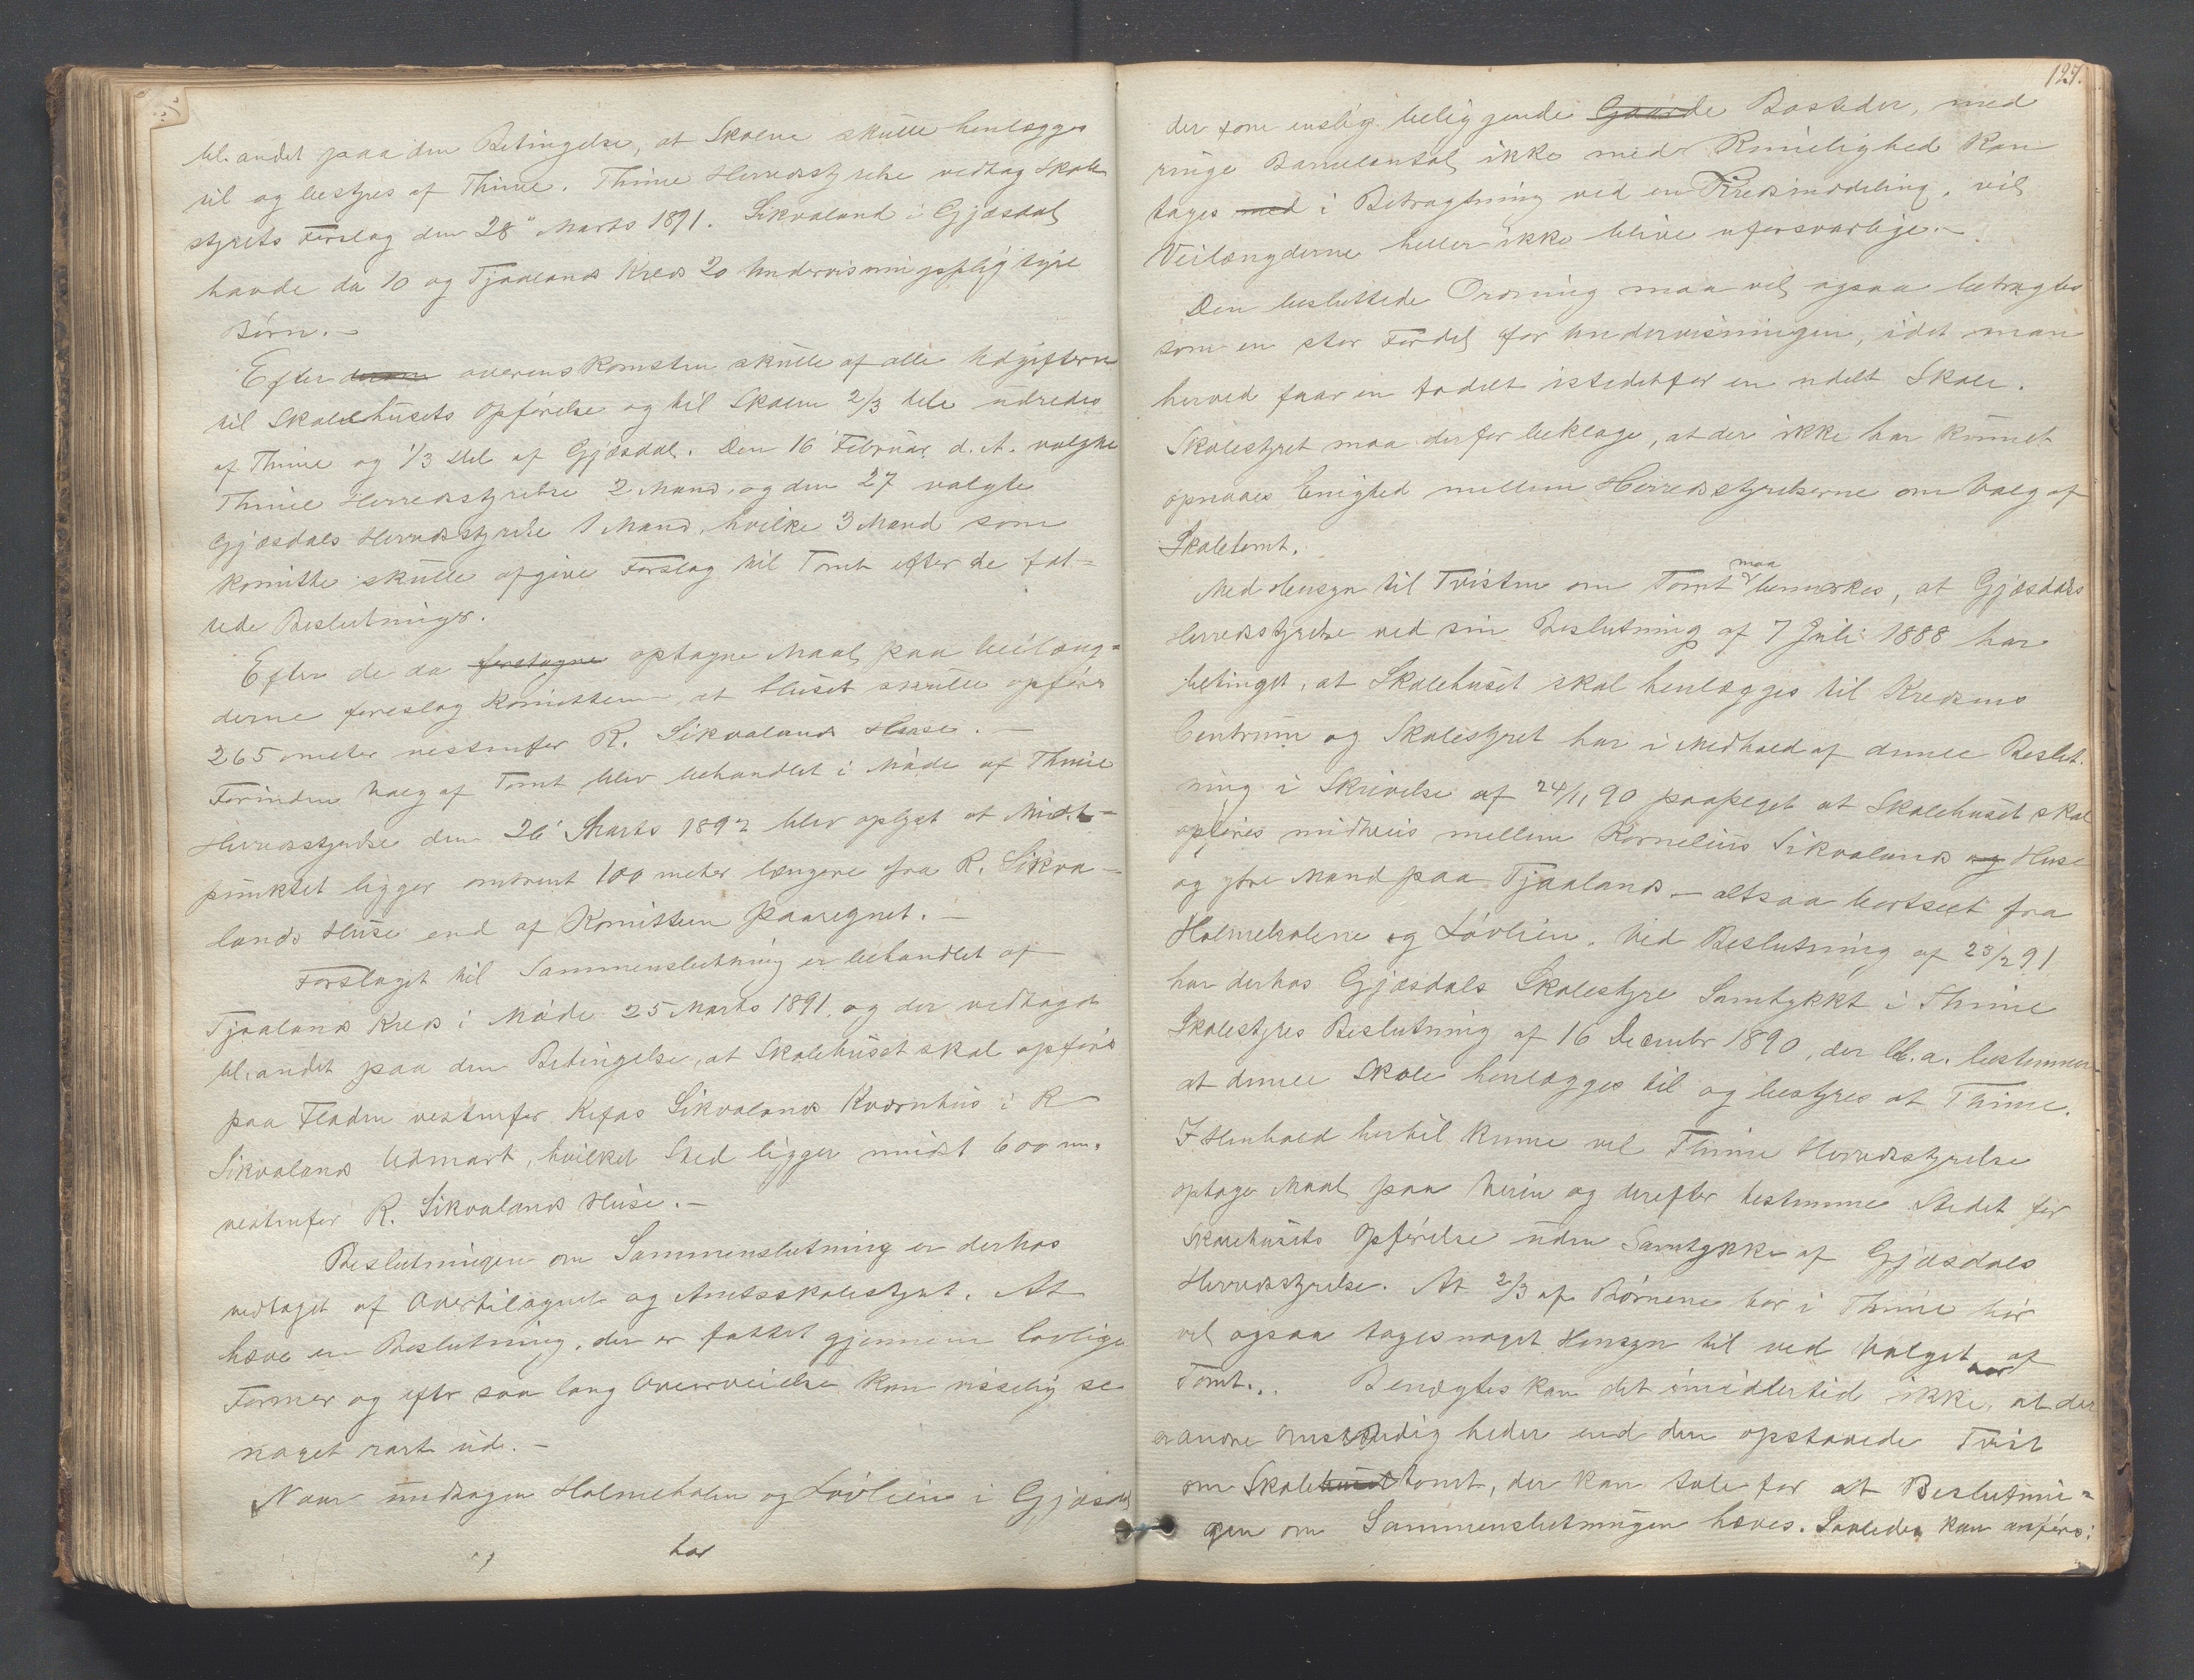 bl. andet paa den Betingelse, at Skolen skulle henlægges
til og bestyres af Thime. Thime Herredsstyrelse vedtog Skole
styrets Forslag den 28" Marts 1891. Sikvaland i Gjæsdal
havde da 10 og Tjaalands Kreds 20 Undervisningspligtige
Børn. -
Efter denne overenskomsten skulle af alle Udgifterne
til Skolehusets Opførelse og til Skolen 2/3 dele udredes
af Thime og 1/3 del af Gjæsdal. Den 16 Februar d. A. valgte
Thime Herredsstyrelse 2 Mand, og den 27 valgte
Gjæsdals Herredsstyrelse 1 Mand, hvilke 3 Mand som
Komitte skulle afgive Forslag til Tomt efter de fat=
tede Beslutninger.
Efter de da foretagne optagne Maal paa Veilæng=
derne foreslog Komitteen, at Huset skulle opføres
265 meter vestenfor R. Sikvalands Huse. -
Forinden Valg af Tomt blev behandlet i Møde af Thime
Herredsstyrelse den 26' Marts 1892 blev oplyst at Midt-
punktet ligger omtrent 100 meter længere fra R. Sikva-
lands Huse end af Komitteen paaregnet. -
Forslaget til Sammenslutning er behandlet af
Tjaalands Kreds i Møde 25 Marts 1891, og der vedtaget
bl. andet paa den Betingelse, at Skolehuset skal opføres
paa Fladen vestenfor Kefas Sikvalands Kværnhus i R
Sikvalands Udmark, hvilket Sted ligger mindst 600 m.
vestenfor R. Sikvalands Huse. -
Beslutningen om Sammenslutning er derhos
vedtaget af Overtilsynet og Amtsskolestyret. At
hæve en Beslutning, der er fattet gjennem lovlige
Former og efter saa lang Overveielse kan visselig se
noget rart ud. -
Naar undtagen Holmeholen og Løvlien i Gjæsdal
har
127.
der som enslig beliggende Gaarde Bosteder, med
ringe Barneantal ikke med Rimelighed kan
tages med i Betragtning ved en Kredsinddeling, vil
Veilængderne heller ikke blive uforsvarlige. -
Den besluttede Ordning maa vel ogsaa betragtes
som en stor Fordel for Undervisningen, idet man
herved faar en todelt istedetfor en udelt Skole.
Skolestyret maa derfor beklage, at der ikke har kunnet
opnaaes Enighed mellem Herredsstyrelserne om Valg af
Skoletomt.
maa
Med Hensyn til Tvisten om Tomt bemærkes, at Gjæsdals
Herredsstyrelse ved sin Beslutning af 7 Juli 1888 har
betinget, at Skolehuset skal henlægges til Kredsens
Centrum og Skolestyret har i Medhold af denne Beslut.
ning i Skrivelse af 24/11 90 paapeget at Skolehuset skal
opføres midtveis mellem Kornelius Sikvalands og Huse
og ytre Mand paa Tjaaland - altsaa bortseet fra
Holmeholene og Løvlien. Ved Beslutning af 23/2 91
har derhos Gjæsdals Skolestyre Samtykkt i Thime
Skolestyres Beslutning af 16 Decembr 1890, der bl. a. bestemmer
at denne Skole henlægges til og bestyres af Thime.
I Henhold hertil kunne vel Thime Herredsstyrelse
optage Maal paa Veien og derefter bestemme Stedet for
Skolehusets Opførelse uden Samtykke af Gjæsdals
Herredsstyrelse. At 2/3 af Børnene bor i Thime bør
vel ogsaa tages noget Hensyn til ved Valget af
Tomt. Benægtes kan det imidlertid ikke, at der
er andre Omstændigheder end den opstaaede Tvist
om Skolehuset tomt, der kan tale for at Beslutnin=
gen om Sammenslutningen hæves. Saaledes kan anføres: